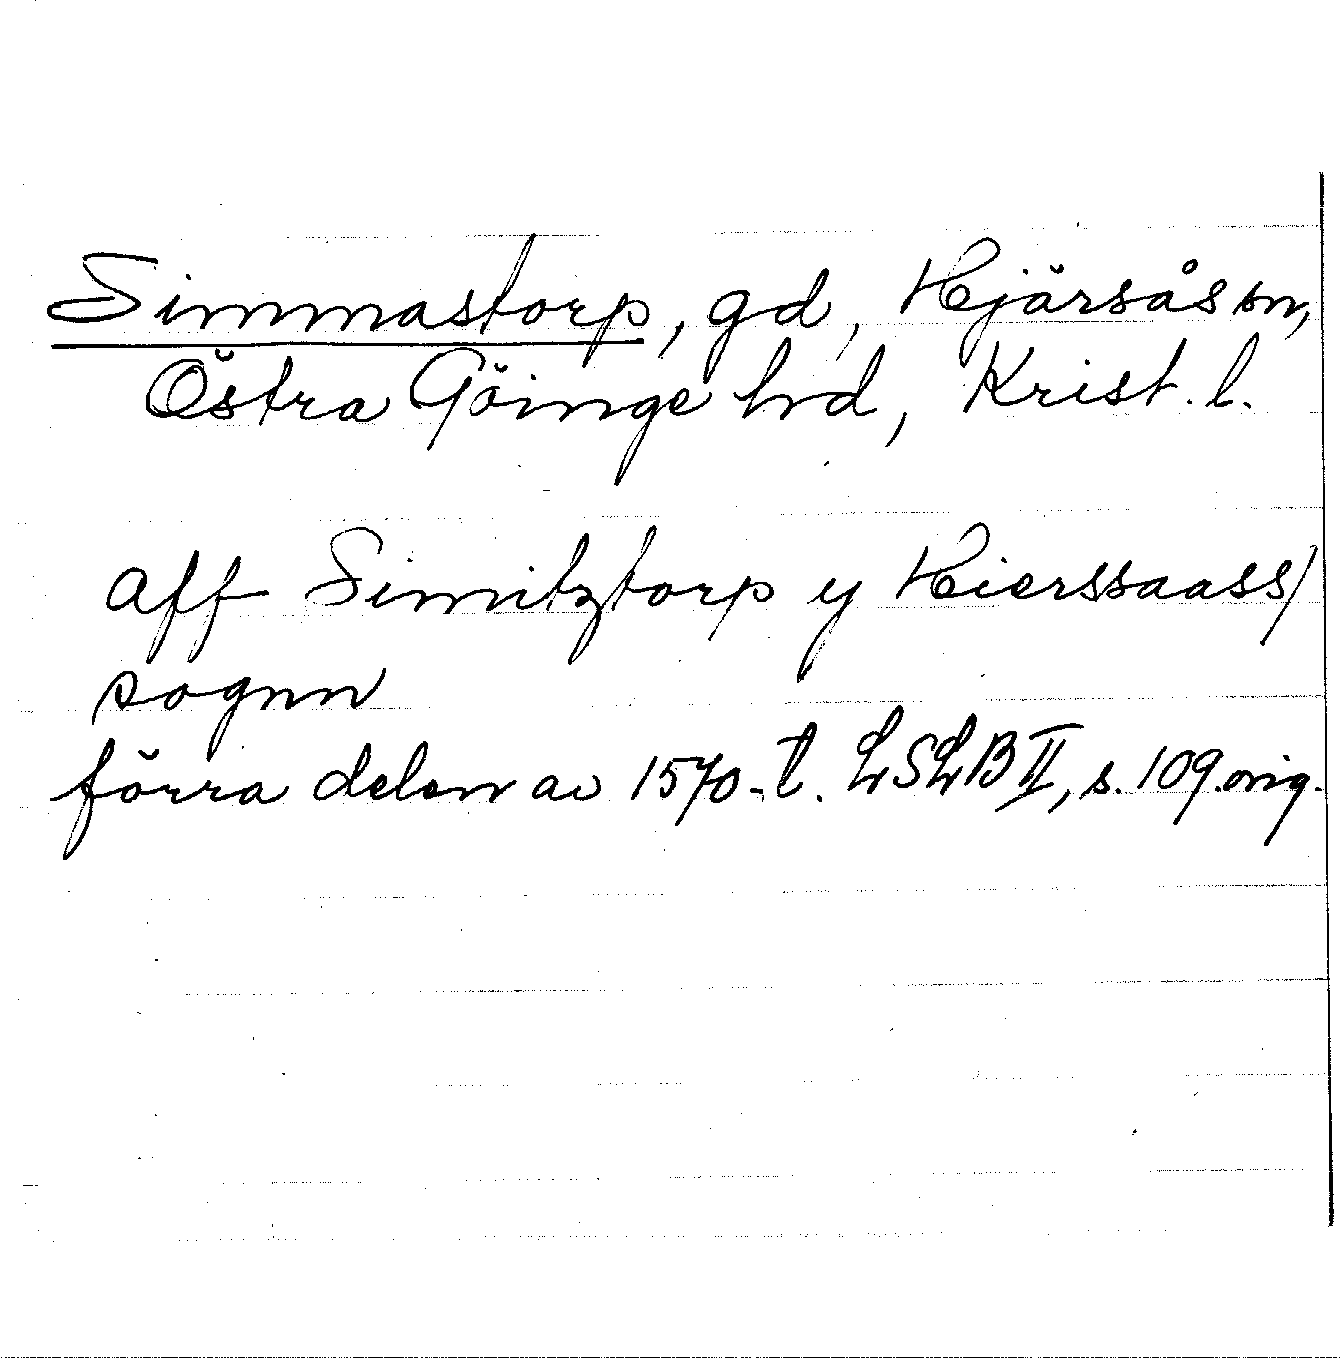 Simmastorp, gd, Hjärsås sn,
Östra Göinge hrd, Krist. l.
aff Simitztorp y Hierssaass/
sognn
förra delen av 1570-t. LSLB II, s. 109 orig.